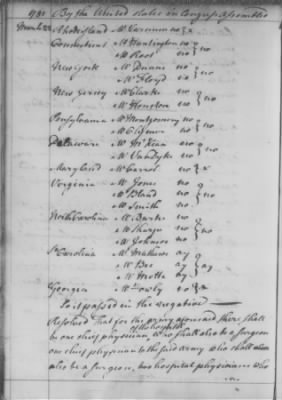 1781 By the United States in Congress assembled
March 22 Rhode Island Mr Varnum no } x
Connecticut Mr Huntington no } no
Mr Root no
New York Mr Duane no } no
Mr Floyd no
New Jersey Mr Clarke no } no
Mr Houston no
Pensylvania Mr Montgomery no } no
Mr Clymer no
Delaware Mr McKean no } no
Mr Vandyke no
Maryland Mr Carroll no } x
Virginia Mr Jones no } no
Mr Bland no
Mr Smith no
North Carolina Mr Burke no } no
Mr Sharpe no
Mr Johnson no
S Carolina Mr Mathews ay } ay
Mr Bee ay
Mr Motte ay
Georgia Mr Howly no } x
So it passed in the negative
Resolved That for the army aforesaid there shall
be one chief physician of the hospital, who shall also be a surgeon
one chief physician to the said army who shall
also be a surgeon, two hospital physicians who